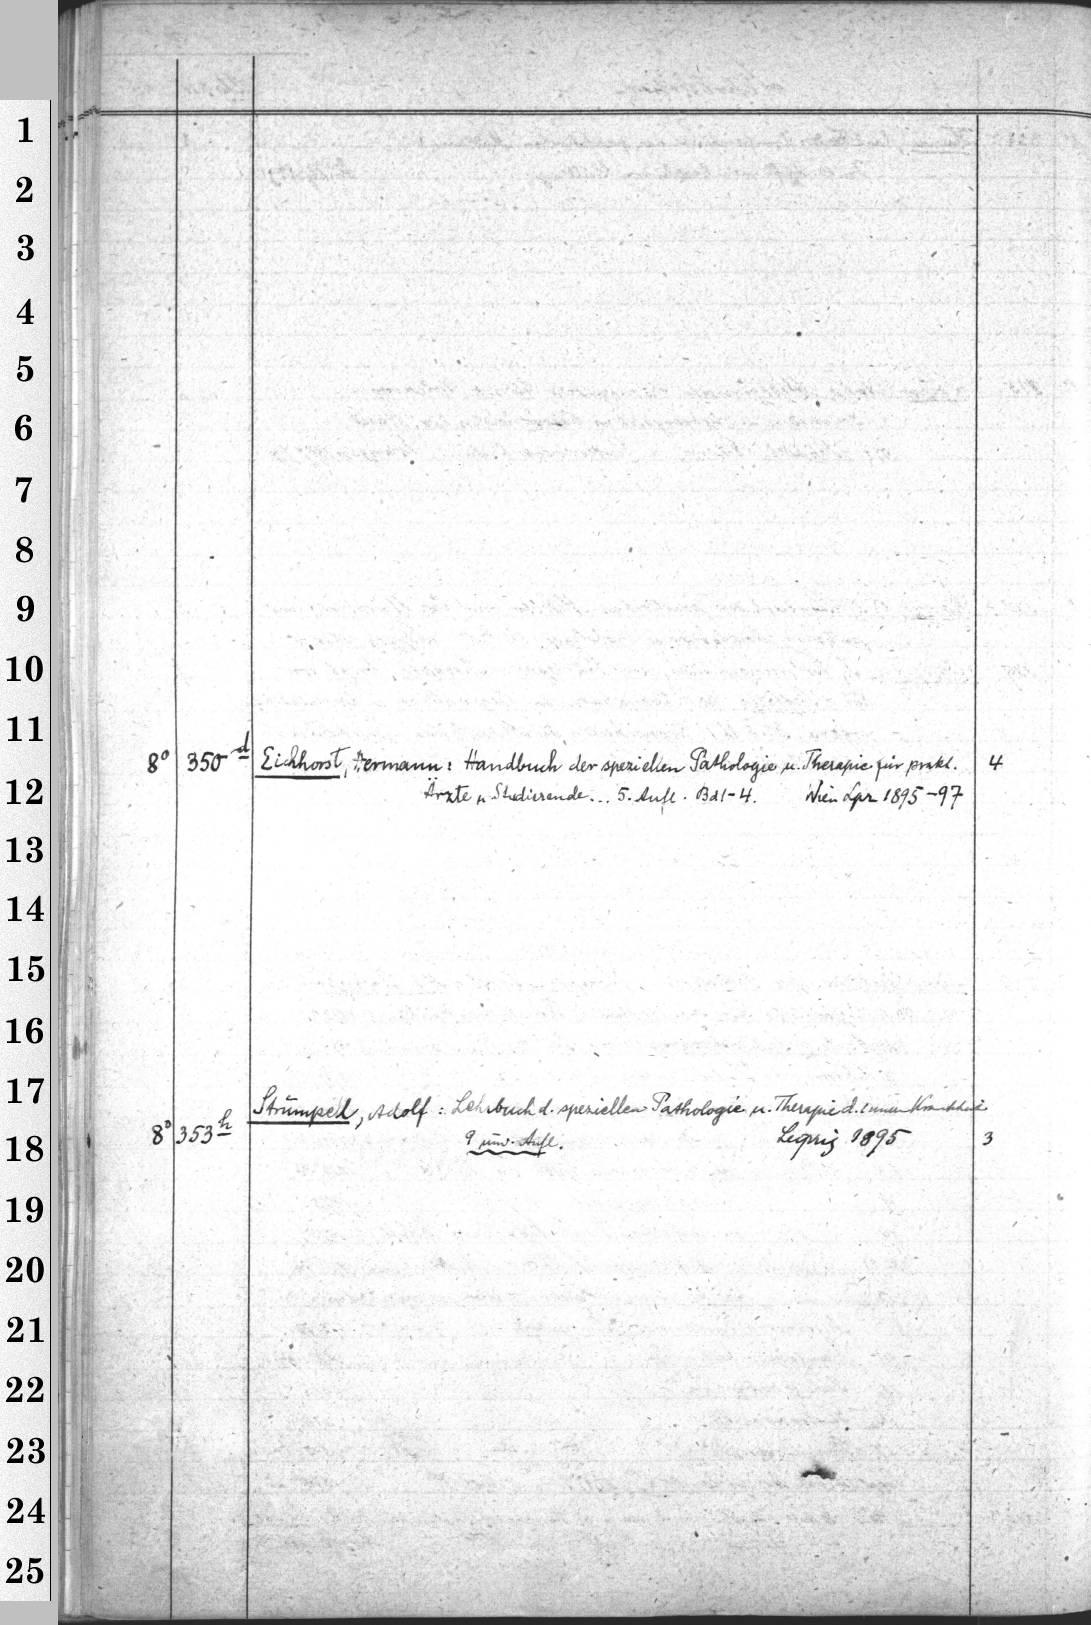 1
2
3
4
5
6
7
8
9
10
11
8° 350 d Eichhorst, Hermann: Handbuch der speziellen Pathologie u. Therapie für prakt. 4
12
Ärzte u. Studierende... 5. Aufl. Bd 1-4. Wien Lpz 1895-97
13
14
15
16
17
Strümpell, Adolf: Lehrbuch d. speziellen Pathologie u. Therapie d. innern Krankheit
18
8° 353 h 9 unv. Aufl. Leipzig 1895 3
19
20
21
22
23
24
25